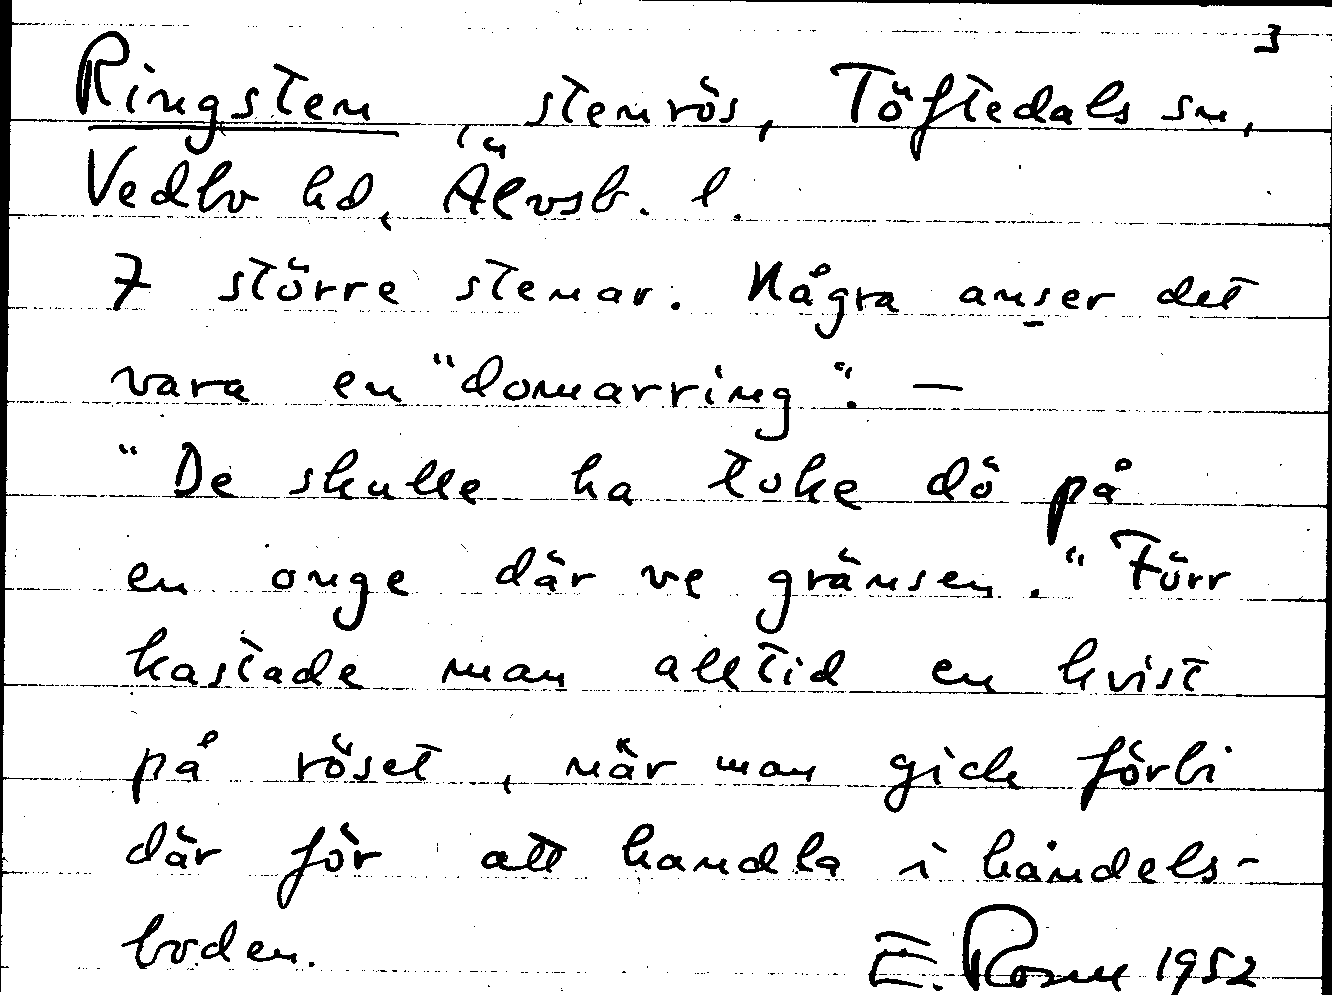 3
Ringsten, stenrös, Töftedals sn,
Vedbo hd, Älvsb. l.
7 större stenar. Några anser det
vara en "domarring". —
"De skulle ha toke dö på
en onge där ve gränsen." Förr
kastade man alltid en kvist
på röset, när man gick förbi
där för att handla i handels-
boden.
E. Rosell 1952